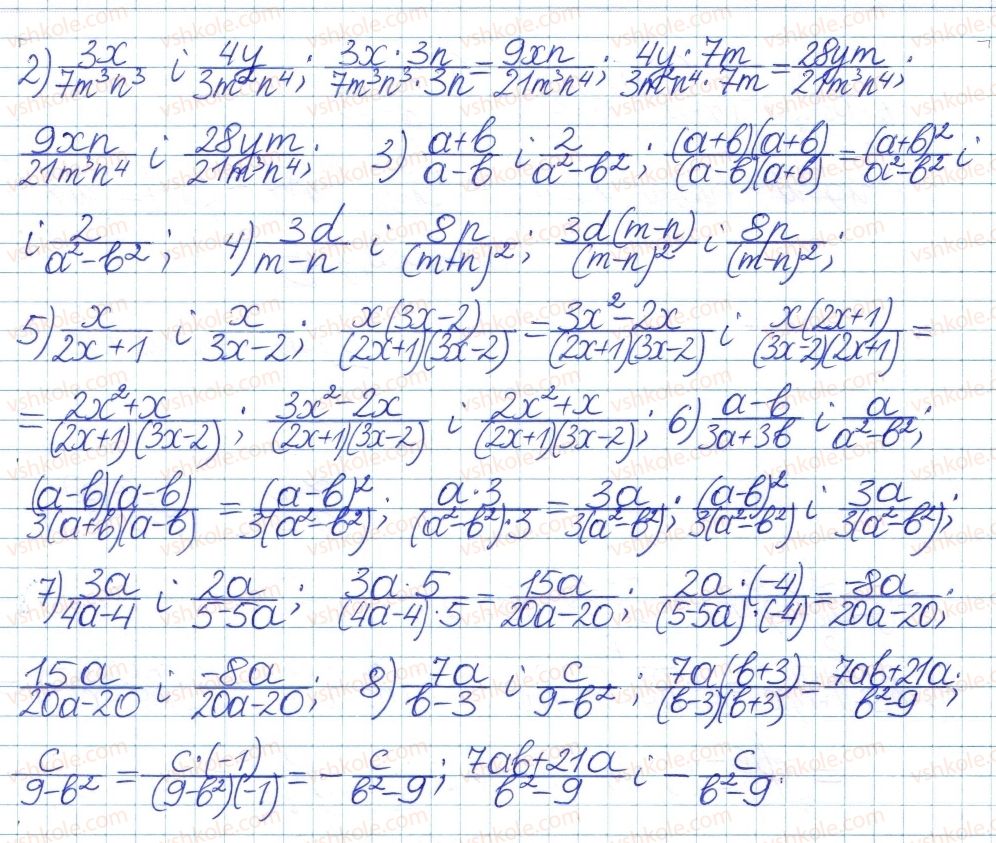 2) 3x/(7m³n³) і 4y/(3m²n⁴); (3x·3n)/(7m³n³·3n) = 9xn/(21m³n⁴); (4y·7m)/(3m²n⁴·7m) = 28ym/(21m³n⁴);
9xn/(21m³n⁴) і 28ym/(21m³n⁴); 3) (a+b)/(a-b) і 2/(a²-b²); ((a+b)(a+b))/((a-b)(a+b)) = (a+b)²/(a²-b²) і
і 2/(a²-b²); 4) 3d/(m-n) і 8n/(m+n)²; 3d(m-n)/(m-n)² і 8n/(m-n)²;
5) x/(2x+1) і x/(3x-2); x(3x-2)/((2x+1)(3x-2)) = (3x²-2x)/((2x+1)(3x-2)) і x(2x+1)/((3x-2)(2x+1)) =
= (2x²+x)/((2x+1)(3x-2)); (3x²-2x)/((2x+1)(3x-2)) і (2x²+x)/((2x+1)(3x-2)); 6) (a-b)/(3a+3b) і a/(a²-b²);
((a-b)(a-b))/(3(a+b)(a-b)) = (a-b)²/(3(a²-b²)); (a·3)/((a²-b²)·3) = 3a/(3(a²-b²)); (a-b)²/(3(a²-b²)) і 3a/(3(a²-b²));
7) 3a/(4a-4) і 2a/(5-5a); (3a·5)/((4a-4)·5) = 15a/(20a-20); (2a·(-4))/((5-5a)·(-4)) = -8a/(20a-20);
15a/(20a-20) і -8a/(20a-20); 8) 7a/(b-3) і c/(9-b²); 7a(b+3)/((b-3)(b+3)) = (7ab+21a)/(b²-9);
c/(9-b²) = (c·(-1))/((9-b²)(-1)) = -c/(b²-9); (7ab+21a)/(b²-9) і -c/(b²-9).